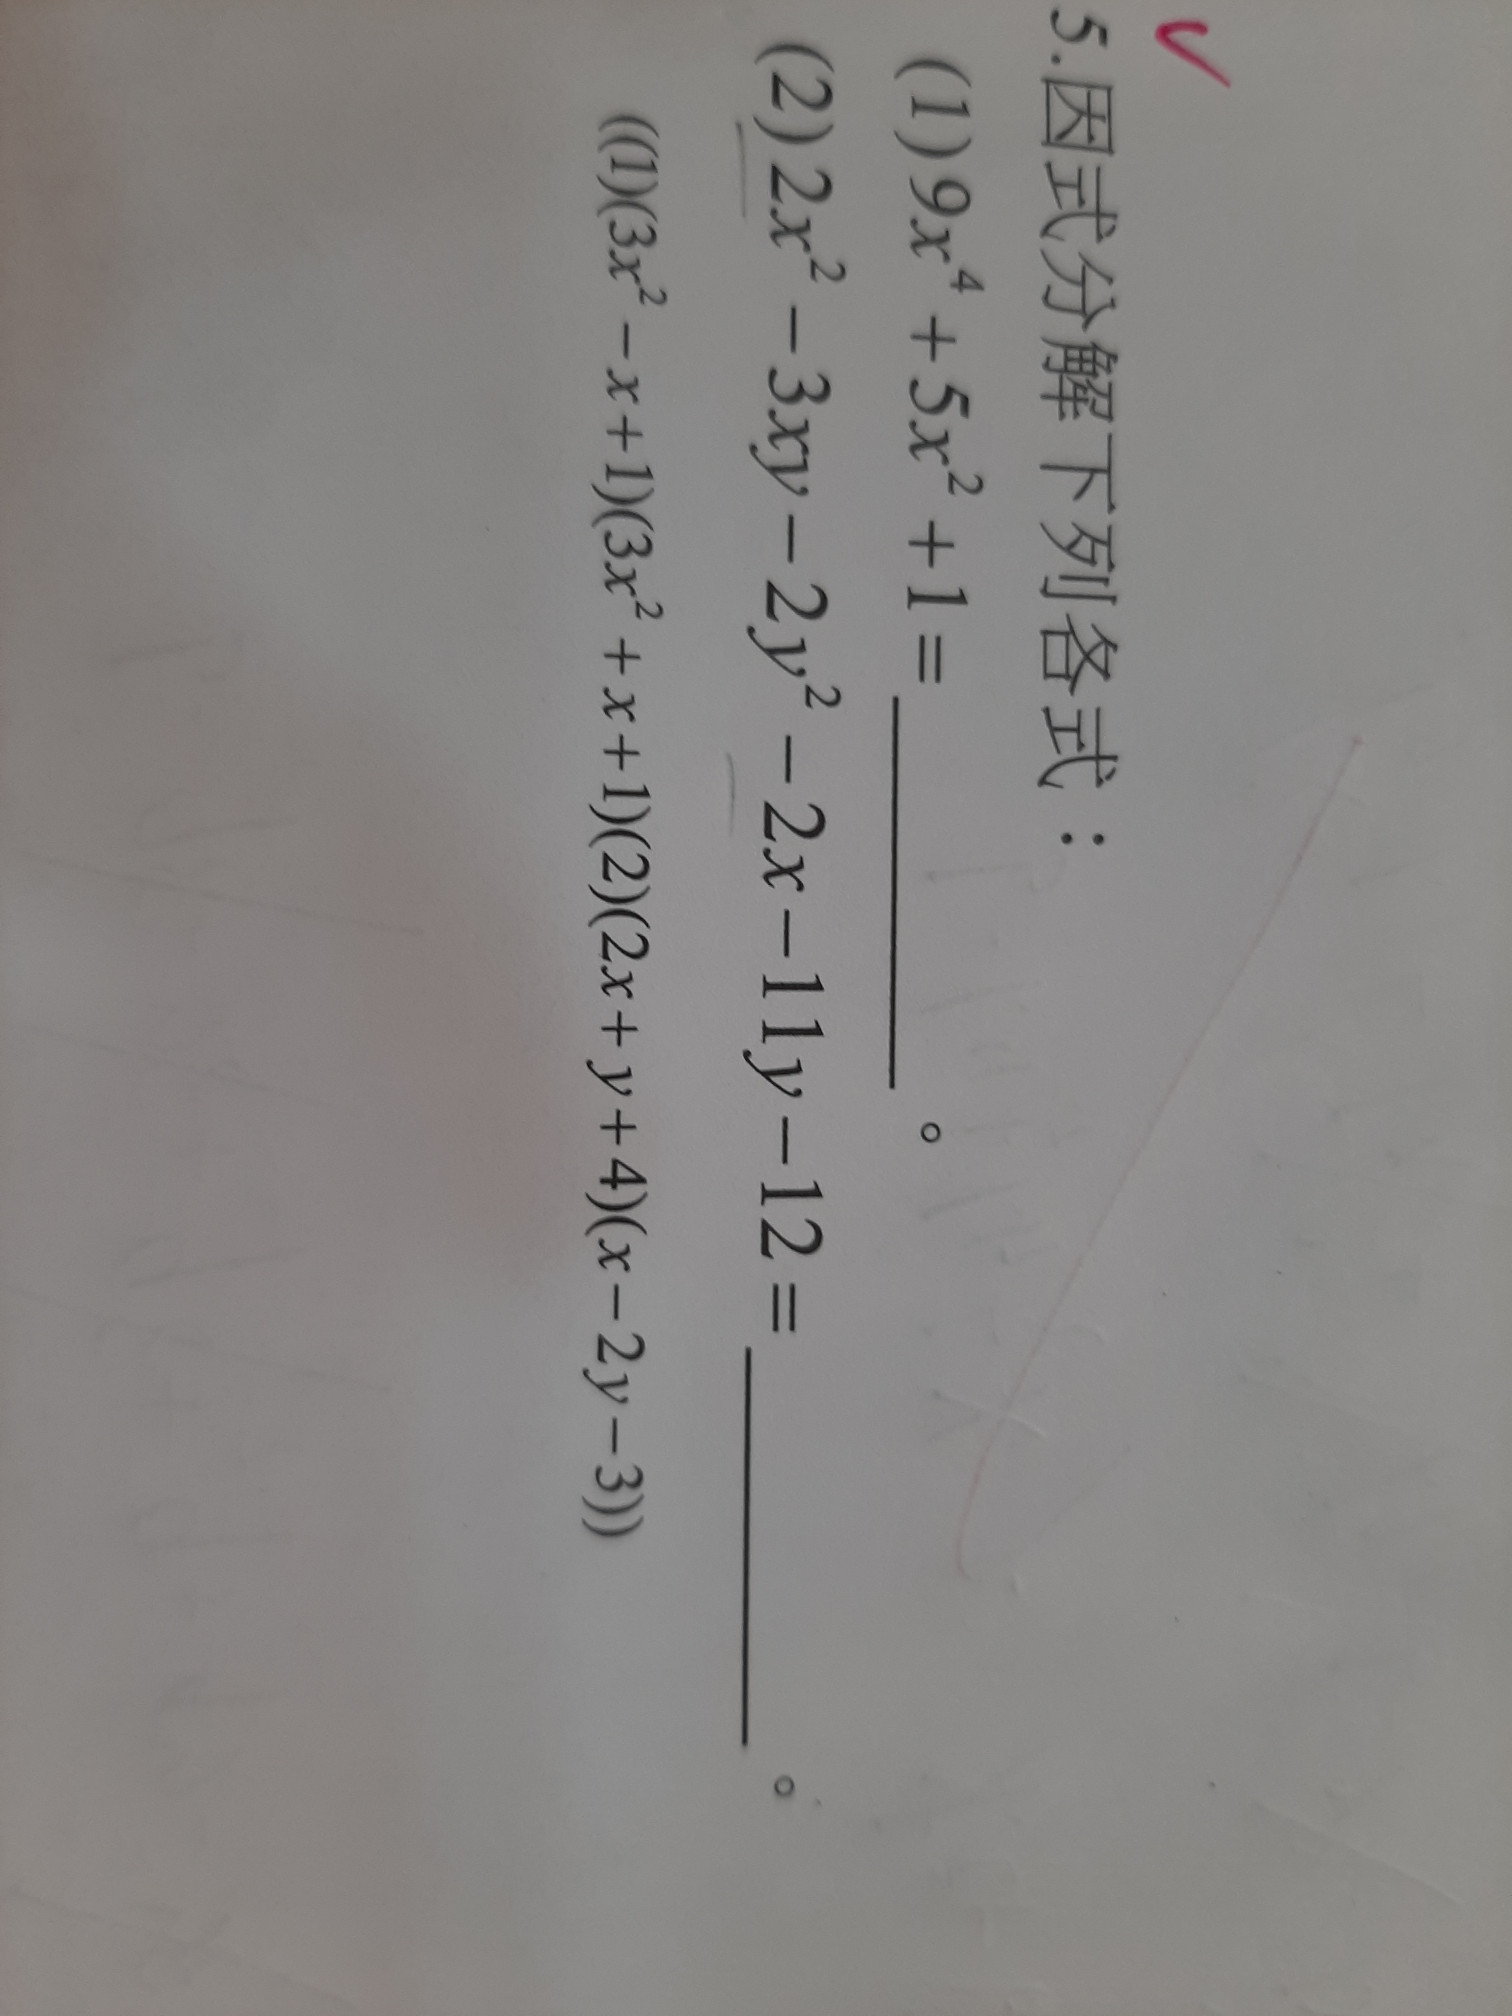 5.因式分解下列各式：
(1) 9x⁴ + 5x² + 1 = ________。
(2) 2x² − 3xy − 2y² − 2x − 11y − 12 = ________。
((1)(3x² − x + 1)(3x² + x + 1)(2)(2x + y + 4)(x − 2y − 3))